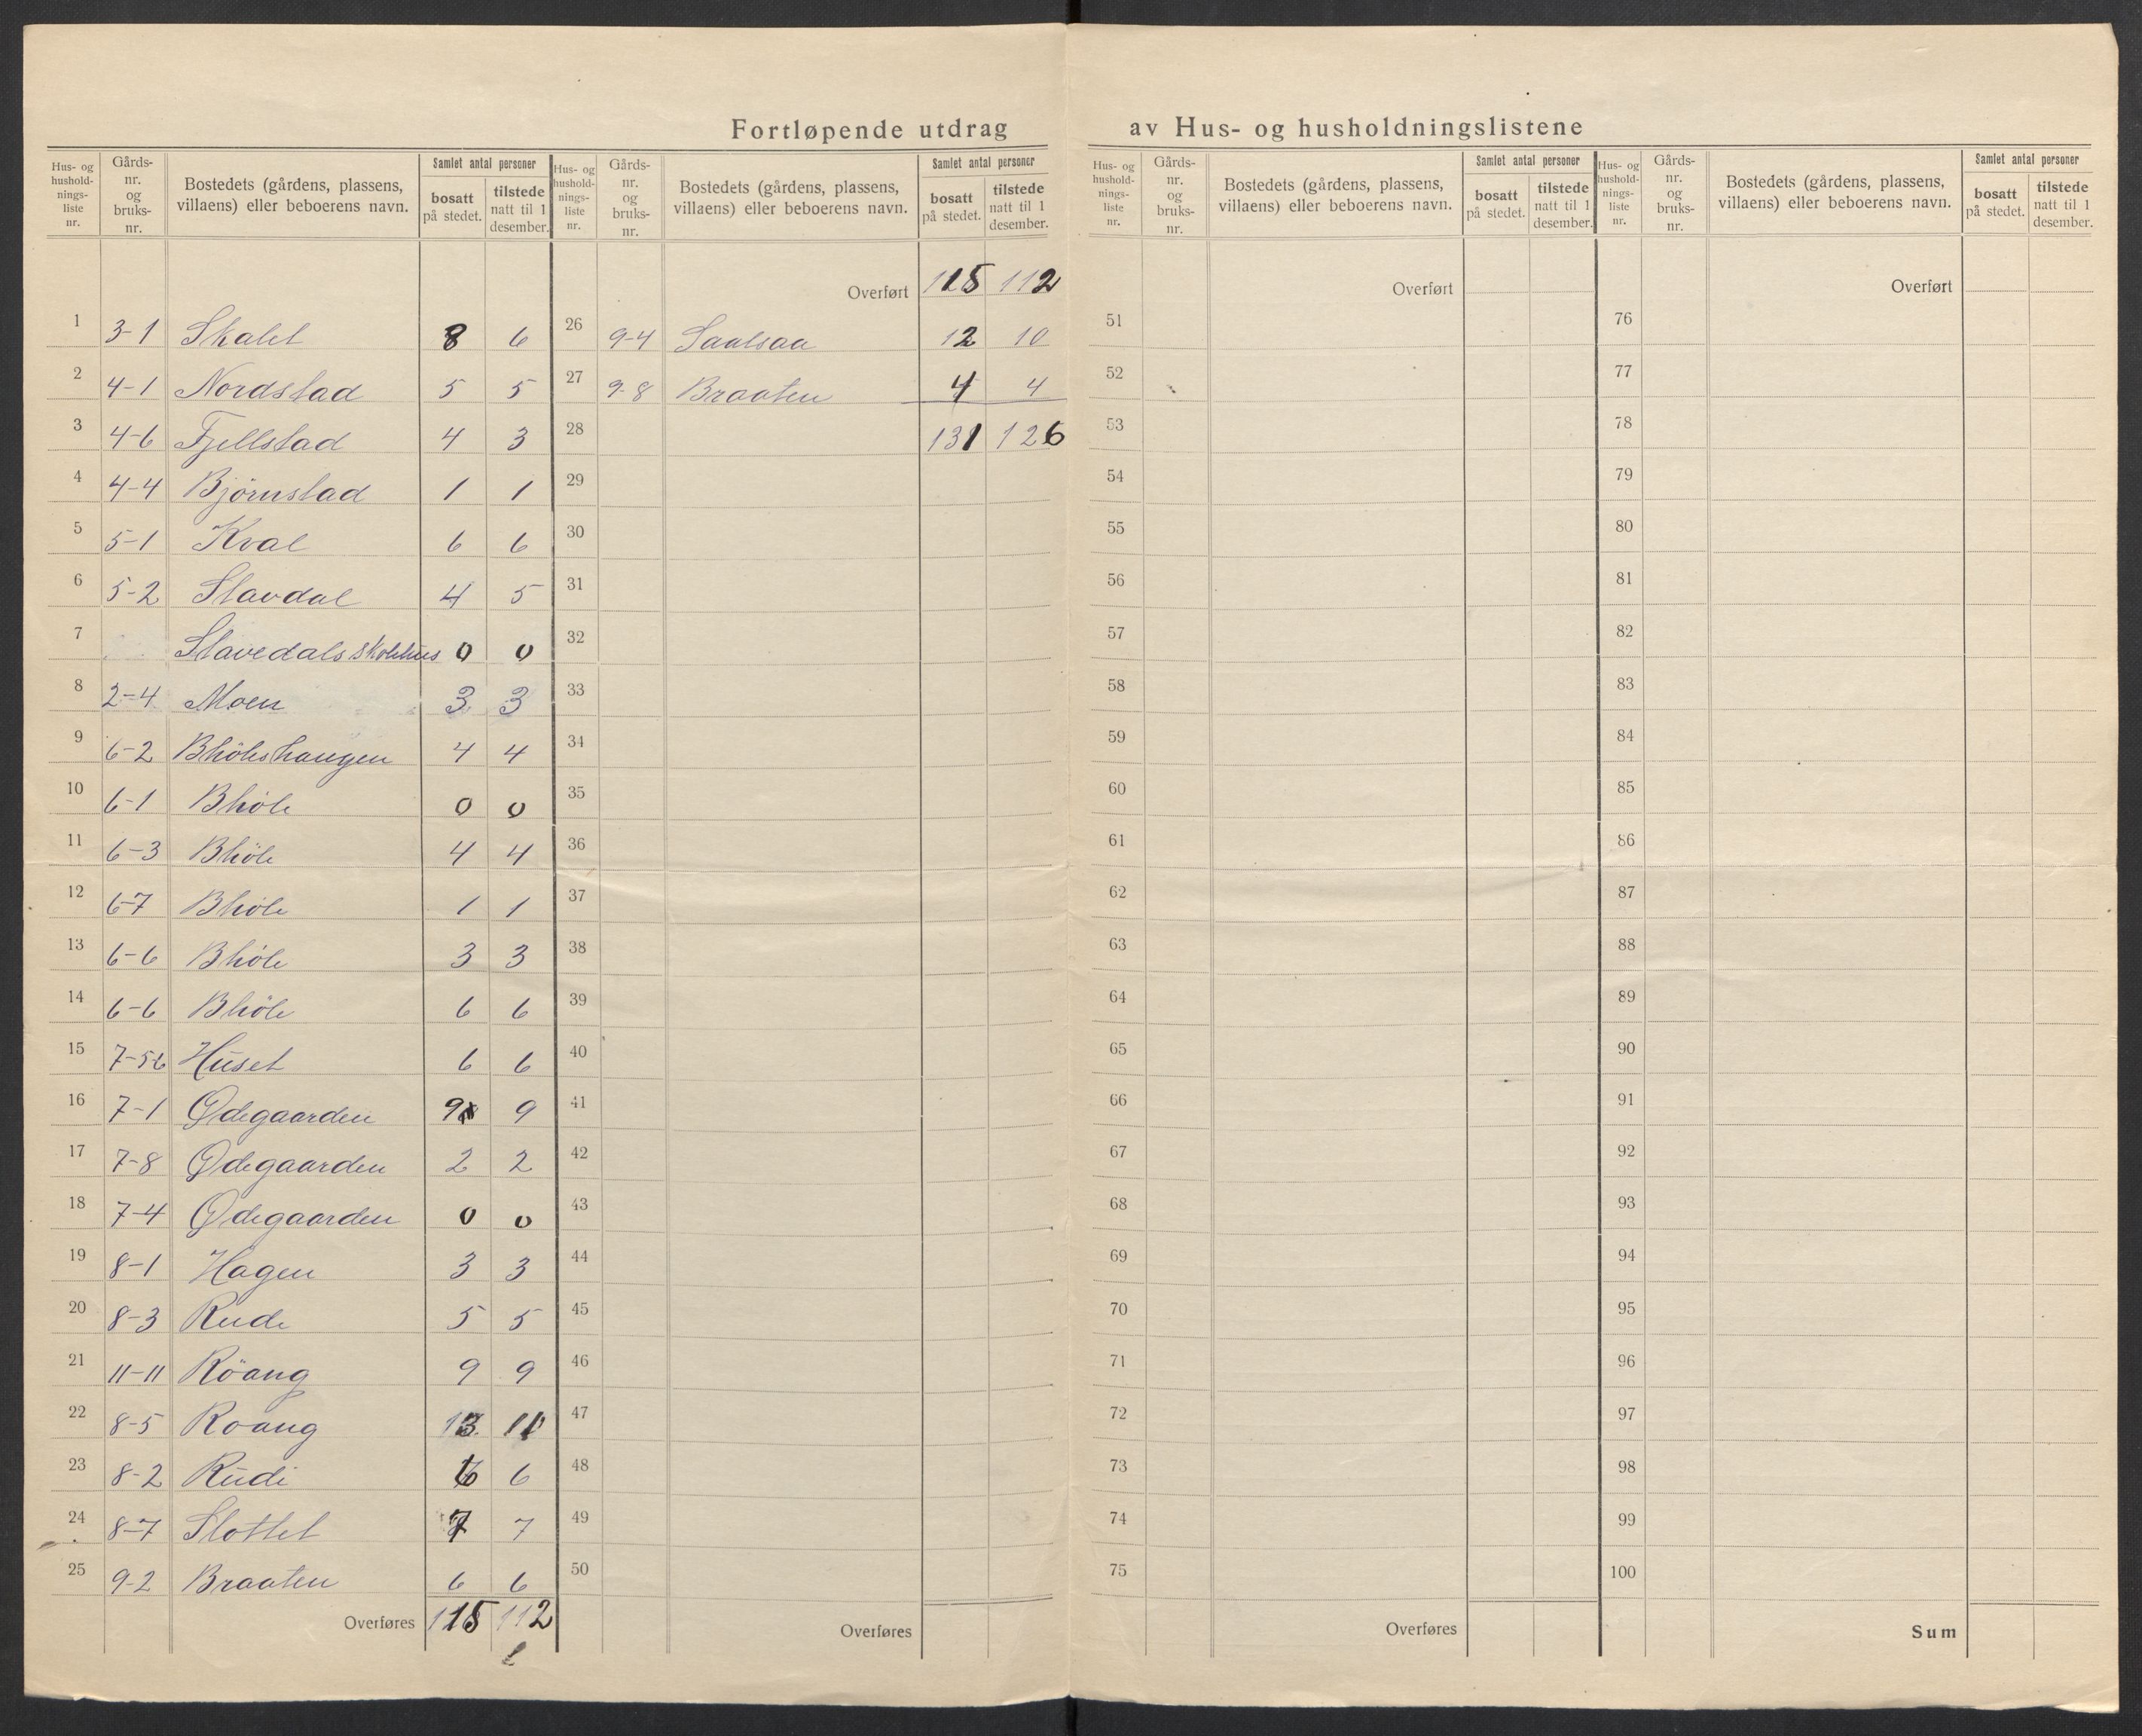 Fortløpende utdrag av Hus- og husholdningslistene
Hus- og hushold-nings-liste nr. | Gårds-nr. og bruks-nr. | Bostedets (gårdens, plassens, villaens) eller beboerens navn. | Samlet antal personer | bosatt på stedet. | tilstede natt til 1 desember.
Hus- og hushold-nings-liste nr. | Gårds-nr. og bruks-nr. | Bostedets (gårdens, plassens, villaens) eller beboerens navn. | Samlet antal personer | bosatt på stedet. | tilstede natt til 1 desember.
Hus- og hushold-nings-liste nr. | Gårds-nr. og bruks-nr. | Bostedets (gårdens, plassens, villaens) eller beboerens navn. | Samlet antal personer | bosatt på stedet. | tilstede natt til 1 desember.
Hus- og hushold-nings-liste nr. | Gårds-nr. og bruks-nr. | Bostedets (gårdens, plassens, villaens) eller beboerens navn. | Samlet antal personer | bosatt på stedet. | tilstede natt til 1 desember.
1 3-1 Skalet 8 6
2 4-1 Nordstad 5 5
3 4-6 Fjellstad 4 3
4 4-4 Björnstad 1 1
5 5-1 Kval 6 6
6 5-2 Stavdal 4 5
7 Stavedals skolehus 0 0
8 2-4 Moen 3 3
9 6-2 Bhöleshaugen 4 4
10 6-1 Bhöle 0 0
11 6-3 Bhöle 4 4
12 6-7 Bhöle 1 1
13 6-6 Bhöle 3 3
14 6-6 Bhöle 6 6
15 7-56 Huset 6 6
16 7-1 Ødegaarden 9 9
17 7-8 Ødegaarden 2 2
18 7-4 Ødegaarden 0 0
19 8-1 Hagen 3 3
20 8-3 Rude 5 5
21 11-11 Röang 9 9
22 8-5 Roang 13 11
23 8-2 Rudi 6 6
24 8-7 Slottet 7 7
25 9-2 Braaten 6 6
Overføres 115 112
Overført 115 112
26 9-4 Saalsaa 12 10
27 9-8 Braaten 4 4
28 131 126
29
30
31
32
33
34
35
36
37
38
39
40
41
42
43
44
45
46
47
48
49
50
Overføres
Overført
51
52
53
54
55
56
57
58
59
60
61
62
63
64
65
66
67
68
69
70
71
72
73
74
75
Overføres
Overført
76
77
78
79
80
81
82
83
84
85
86
87
88
89
90
91
92
93
94
95
96
97
98
99
100
Sum